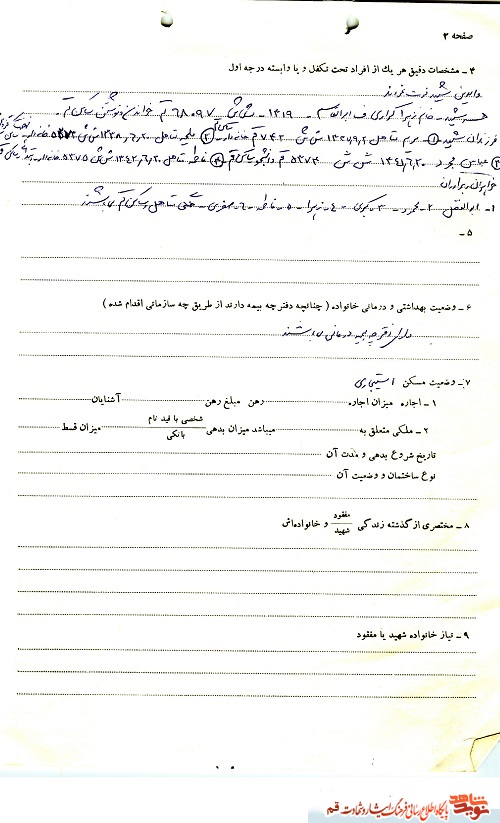 صفحه ۲
۴ - مشخصات دقیق هر یك از افراد تحت تكفل و یا وابسته درجه اول
والدین شهید فوت نموده‌اند
همسر شهید - خانم زهرا ف ۱۳۱۹ - ش ش ۶۸۰۹۷ قم خواندن و نوشتن ساكن قم
فرزندان شهید ۱ مریم متاهل ش ش ۷۴۳ قم خانه‌دار ۲ متاهل ۱۳۳۸،۶،۲۰ ش ش
۳ عباس مجرد ۱۳۴۱،۶،۲۰ ش ش ۵۳۷۴ قم دانشجو ساكن قم ۴ فاطمه متاهل ۱۳۴۲،۶،۲۰ ش ش ۵۳۷۵ خانه‌دار
خواهران و برادران
۱ - ابوالفضل ۲ - محمود ۳ - كبری ۴ - زهرا ۵ - فاطمه ۶ - صغری - همگی متاهل و ساكن قم می‌باشند
۵ -
۶ - وضعیت بهداشتی و درمانی خانواده ( چنانچه دفترچه بیمه دارند از طریق چه سازمانی اقدام شده )
دارای دفترچه بیمه درمانی می‌باشند
۷ - وضعیت مسكن استیجاری
۱ - اجاره میزان اجاره رهن مبلغ رهن آشنایان
۲ - ملكی متعلق به میباشد میزان بدهی شخصی با قید نام بانكی میزان قسط
تاریخ شروع بدهی و مدت آن
نوع ساختمان و وضعیت آن
۸ - مختصری از گذشته زندگی مفقود شهید و خانواده‌اش
۹ - نیاز خانواده شهید یا مفقود
نوید شاهد پایگاه اطلاع رسانی فرهنگ ایثار و شهادت قم